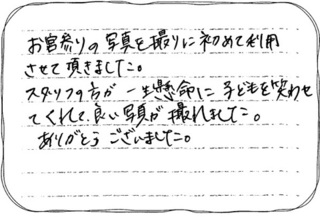 お宮参りの写真を撮りに初めて利用
させて頂きました。
スタッフの方が一生懸命に子どもを笑わせ
てくれて良い写真が撮れました。
ありがとうございました。